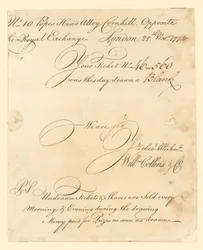 No 10 Popes Head Alley Cornhill Opposite
the Royal Exchange London 28
Your Ticket No 46=560
was this day drawn a Blank
We are Sir
Your
Will Collins & Co
P.S.
Undrawn Tickets & Shares are Sold every
Morning & Evening during the drawing
Money paid for Prizes as soon as drawn